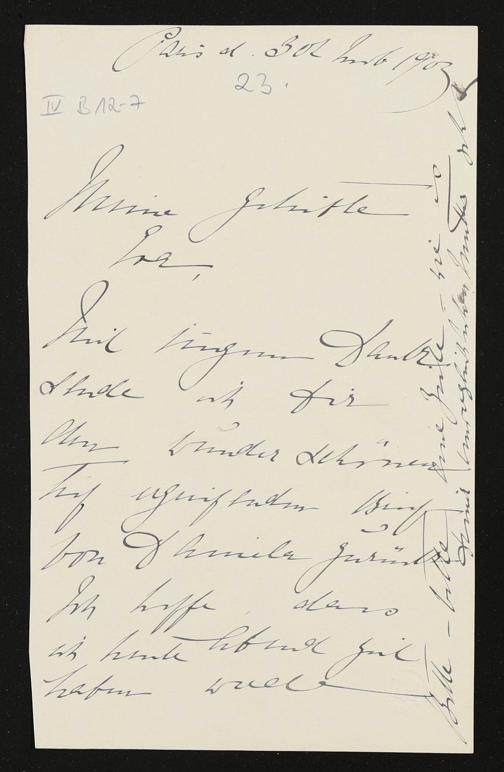 Paris d. 30t 1903
23.
IV B 12-7
Meine geliebte
Eva,
Mit innigem Dank
sende ich Dir
den wunderschönen
tief ergreifenden Brief
von Daniela zurück
Ich hoffe, dass
ich heute Abend Zeit
haben werde
Bitte - bitte eine Zeile - wie es
Deiner Mutter geht